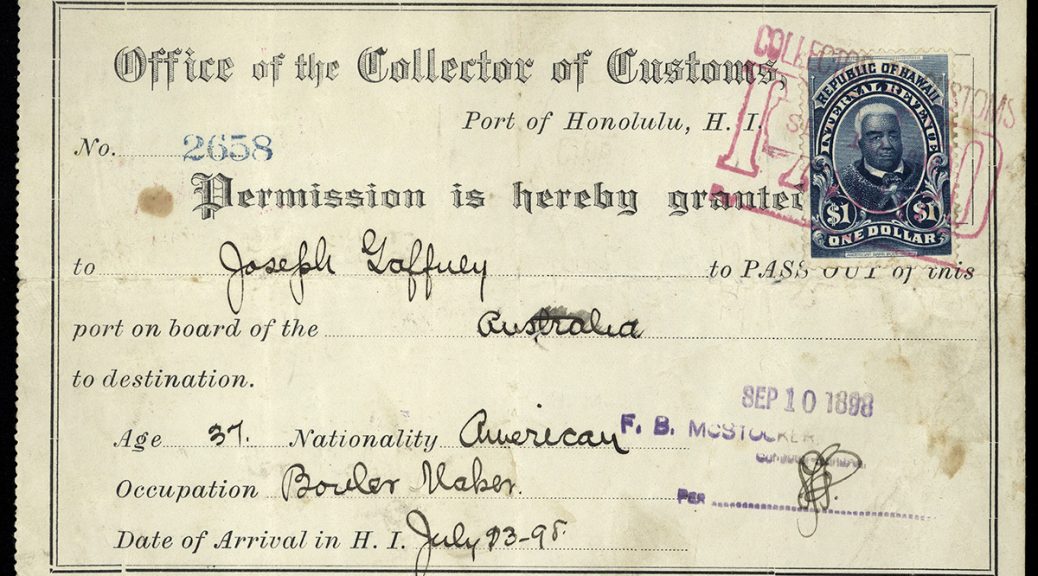 Office of the Collector of Customs,
Port of Honolulu, H. I.
No. 2658
Permission is hereby granted
to Joseph Gaffney to PASS OUT of this
port on board of the Australia
to destination.
Age 37. Nationality American
Occupation Bouler Maker.
Date of Arrival in H. I. July 23-98
COLLECTOR CUSTOMS
REPUBLIC OF HAWAII
INTERNAL REVENUE
$1 $1
ONE DOLLAR
SEP 10 1898
F. B. MCSTOCKER
PER